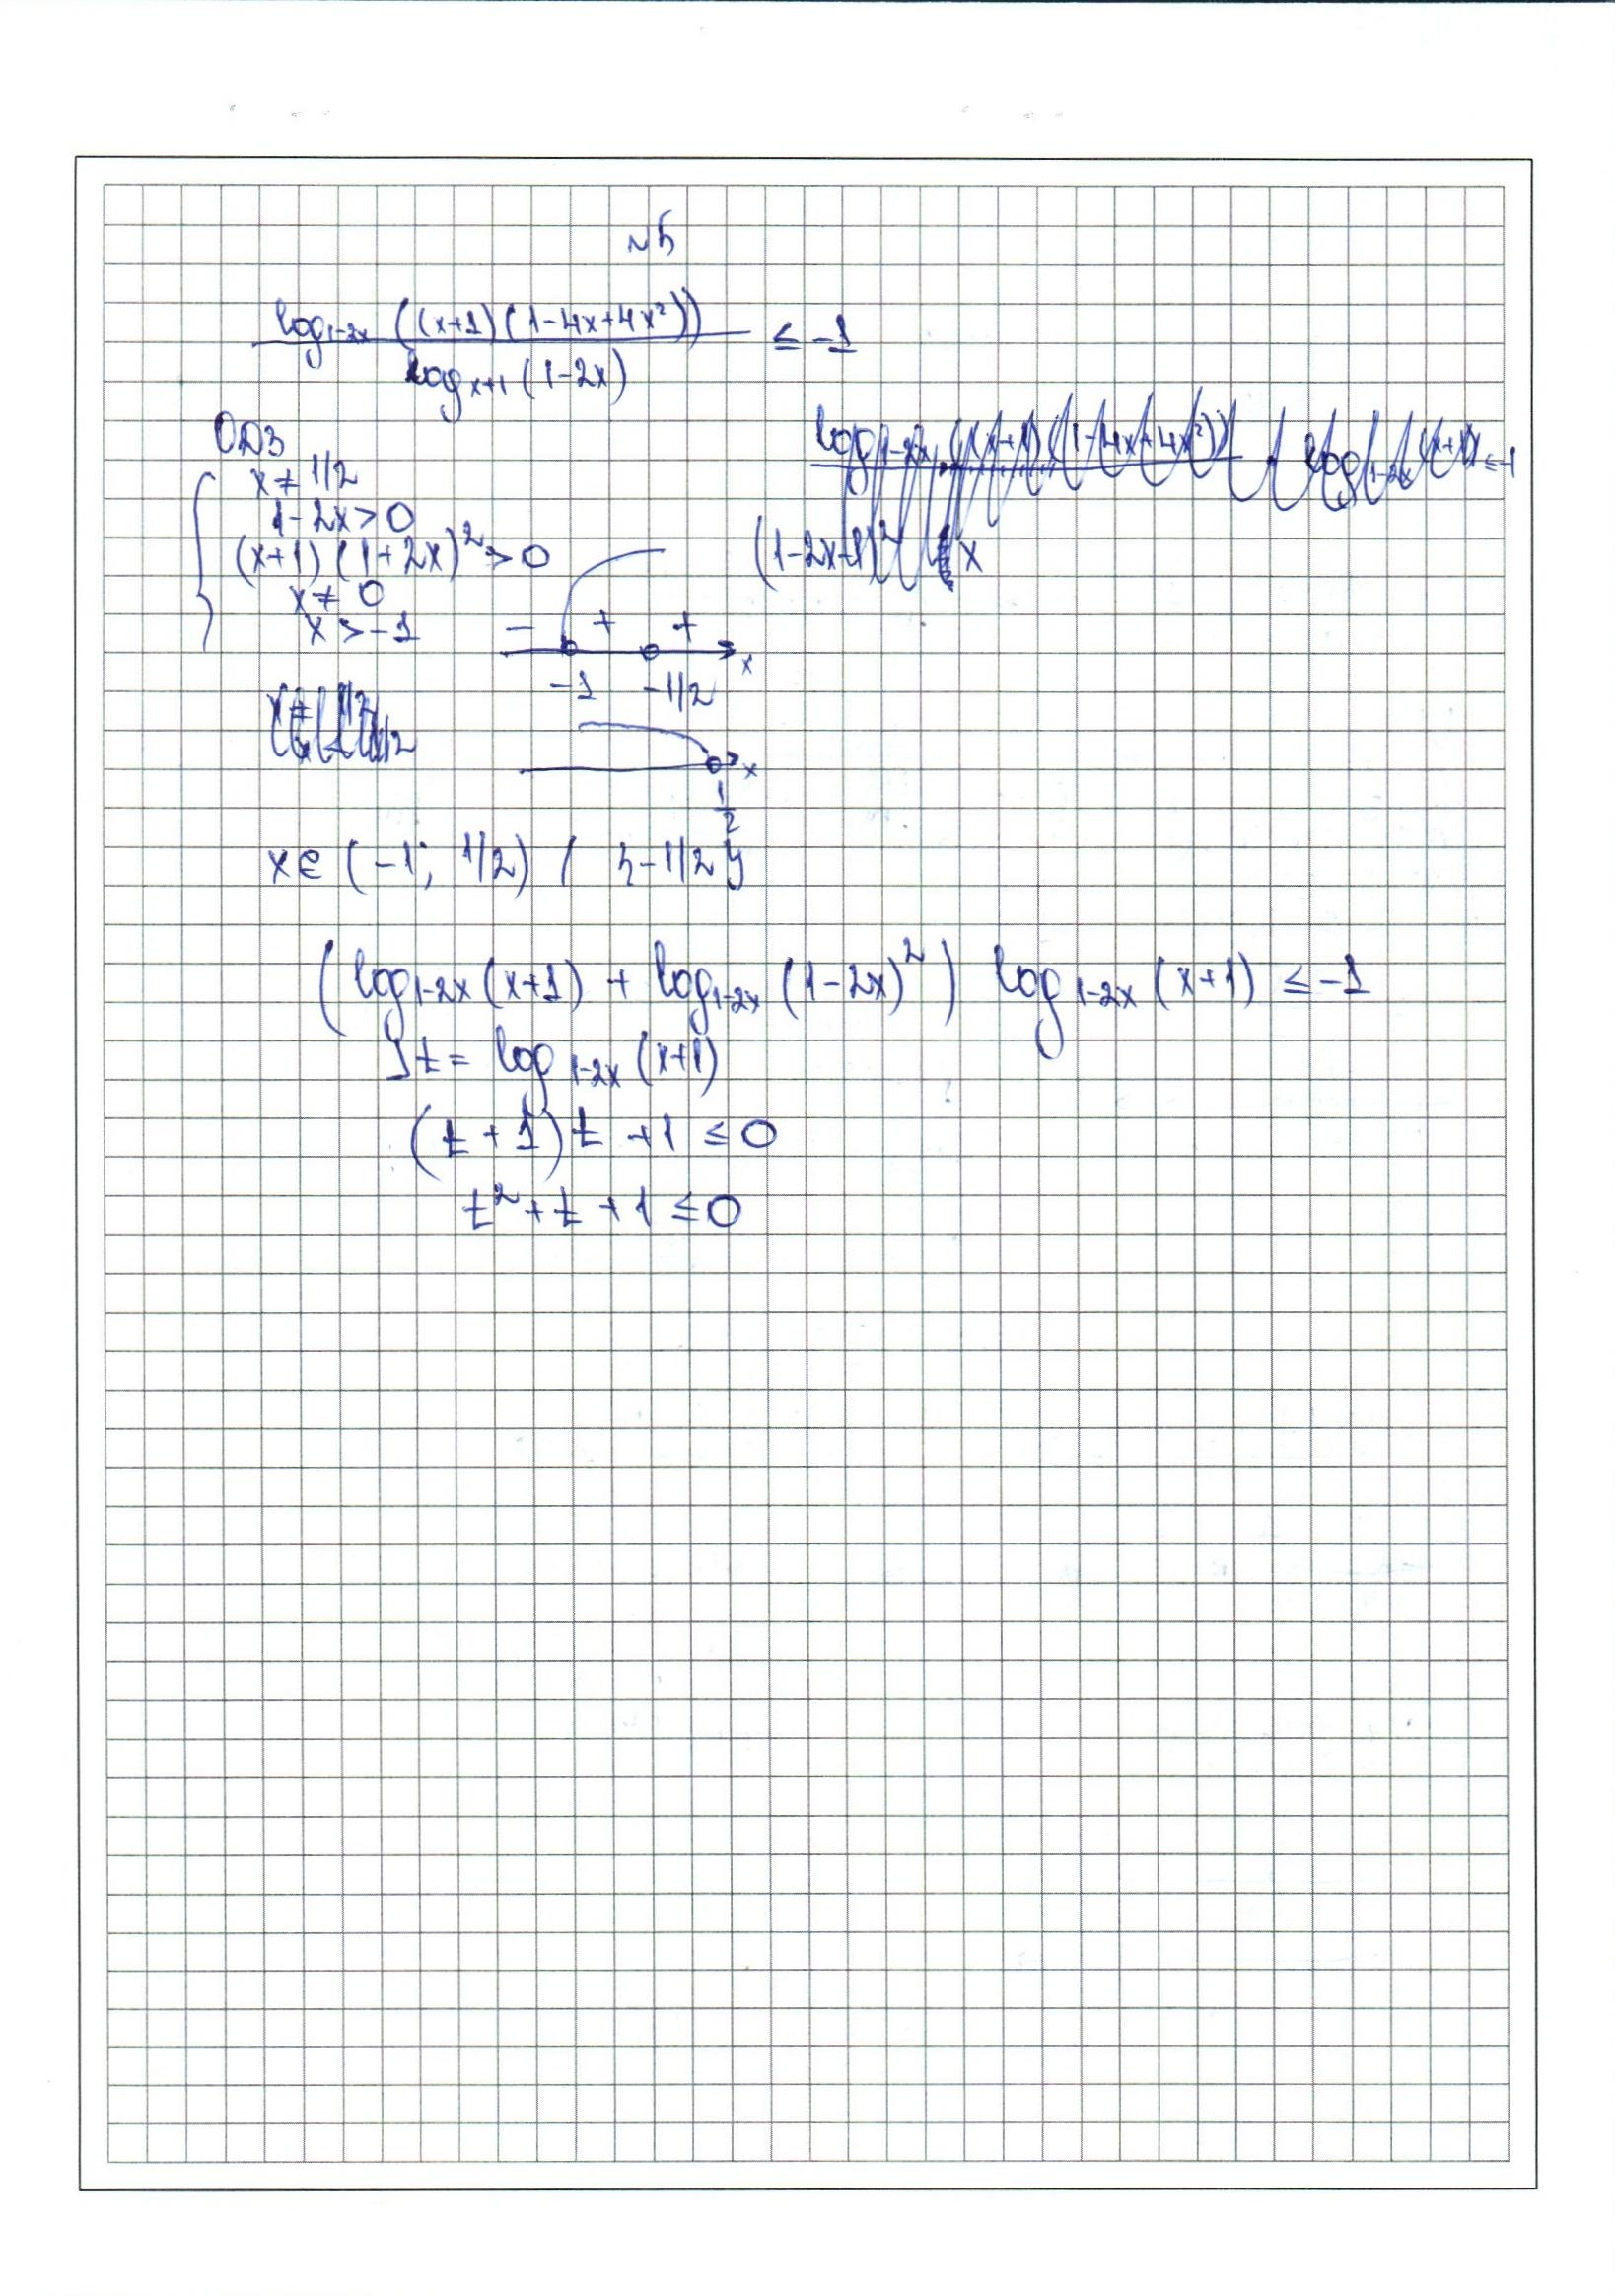 №5
log₁₋₂ₓ ((x+1)(1-4x+4x²)) / log ₓ₊₁ (1-2x) ≤ -1
ОДЗ
x ≠ 1/2
1-2x>0
(x+1)(1+2x)²>0
x ≠ 0
x >-1
- + +
-1 -1/2 x
x
1/2
x∈ (-1; 1/2) / {-1/2}
(log₁₋₂ₓ (x+1) + log₁₋₂ₓ (1-2x)²) log₁₋₂ₓ (x+1) ≤ -1
] t = log₁₋₂ₓ (x+1)
(t+1)t +1 ≤ 0
t² + t + 1 ≤ 0